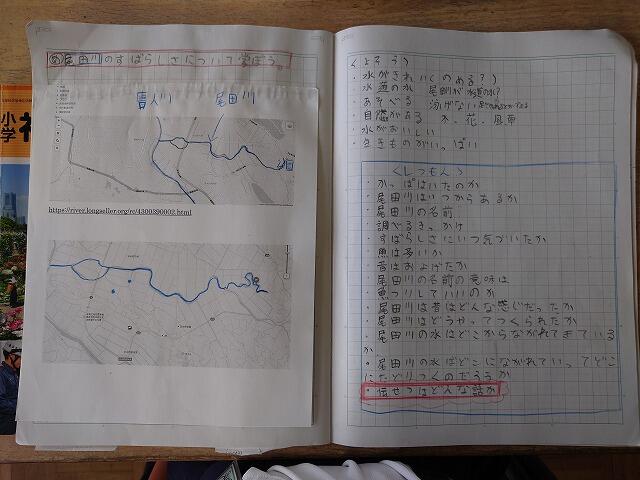 め 尾田川のすばらしさについて学ぼう。
貴入川 尾田川
https://river.longseller.org/rc/4300390002.html
小学
くよそう)
・水がきれい(のある?)
・水道の水 尾田川が水道の水?
・あそべる 泳げない
・自然がある 木、花、風車
・水がおいしい
・生きものがいっぱい
<しつもん>
・かっぱはいたのか
・尾田川はいつからあるか
・尾田川の名前
・調べるきっかけ
・すばらしさにいつ気づいたか
・魚は多いか
・昔はおよげたか
・尾田川の名前の意味は
・魚つりしていいのか
・尾田川は昔はどんな感じだったか
・尾田川はどうやってつくられたか
・尾田川の水はどこからながれてきている
か
・尾田川の水はどこにながれていってどこ
にたどりつくのだろうか
・伝せつはどんな話か